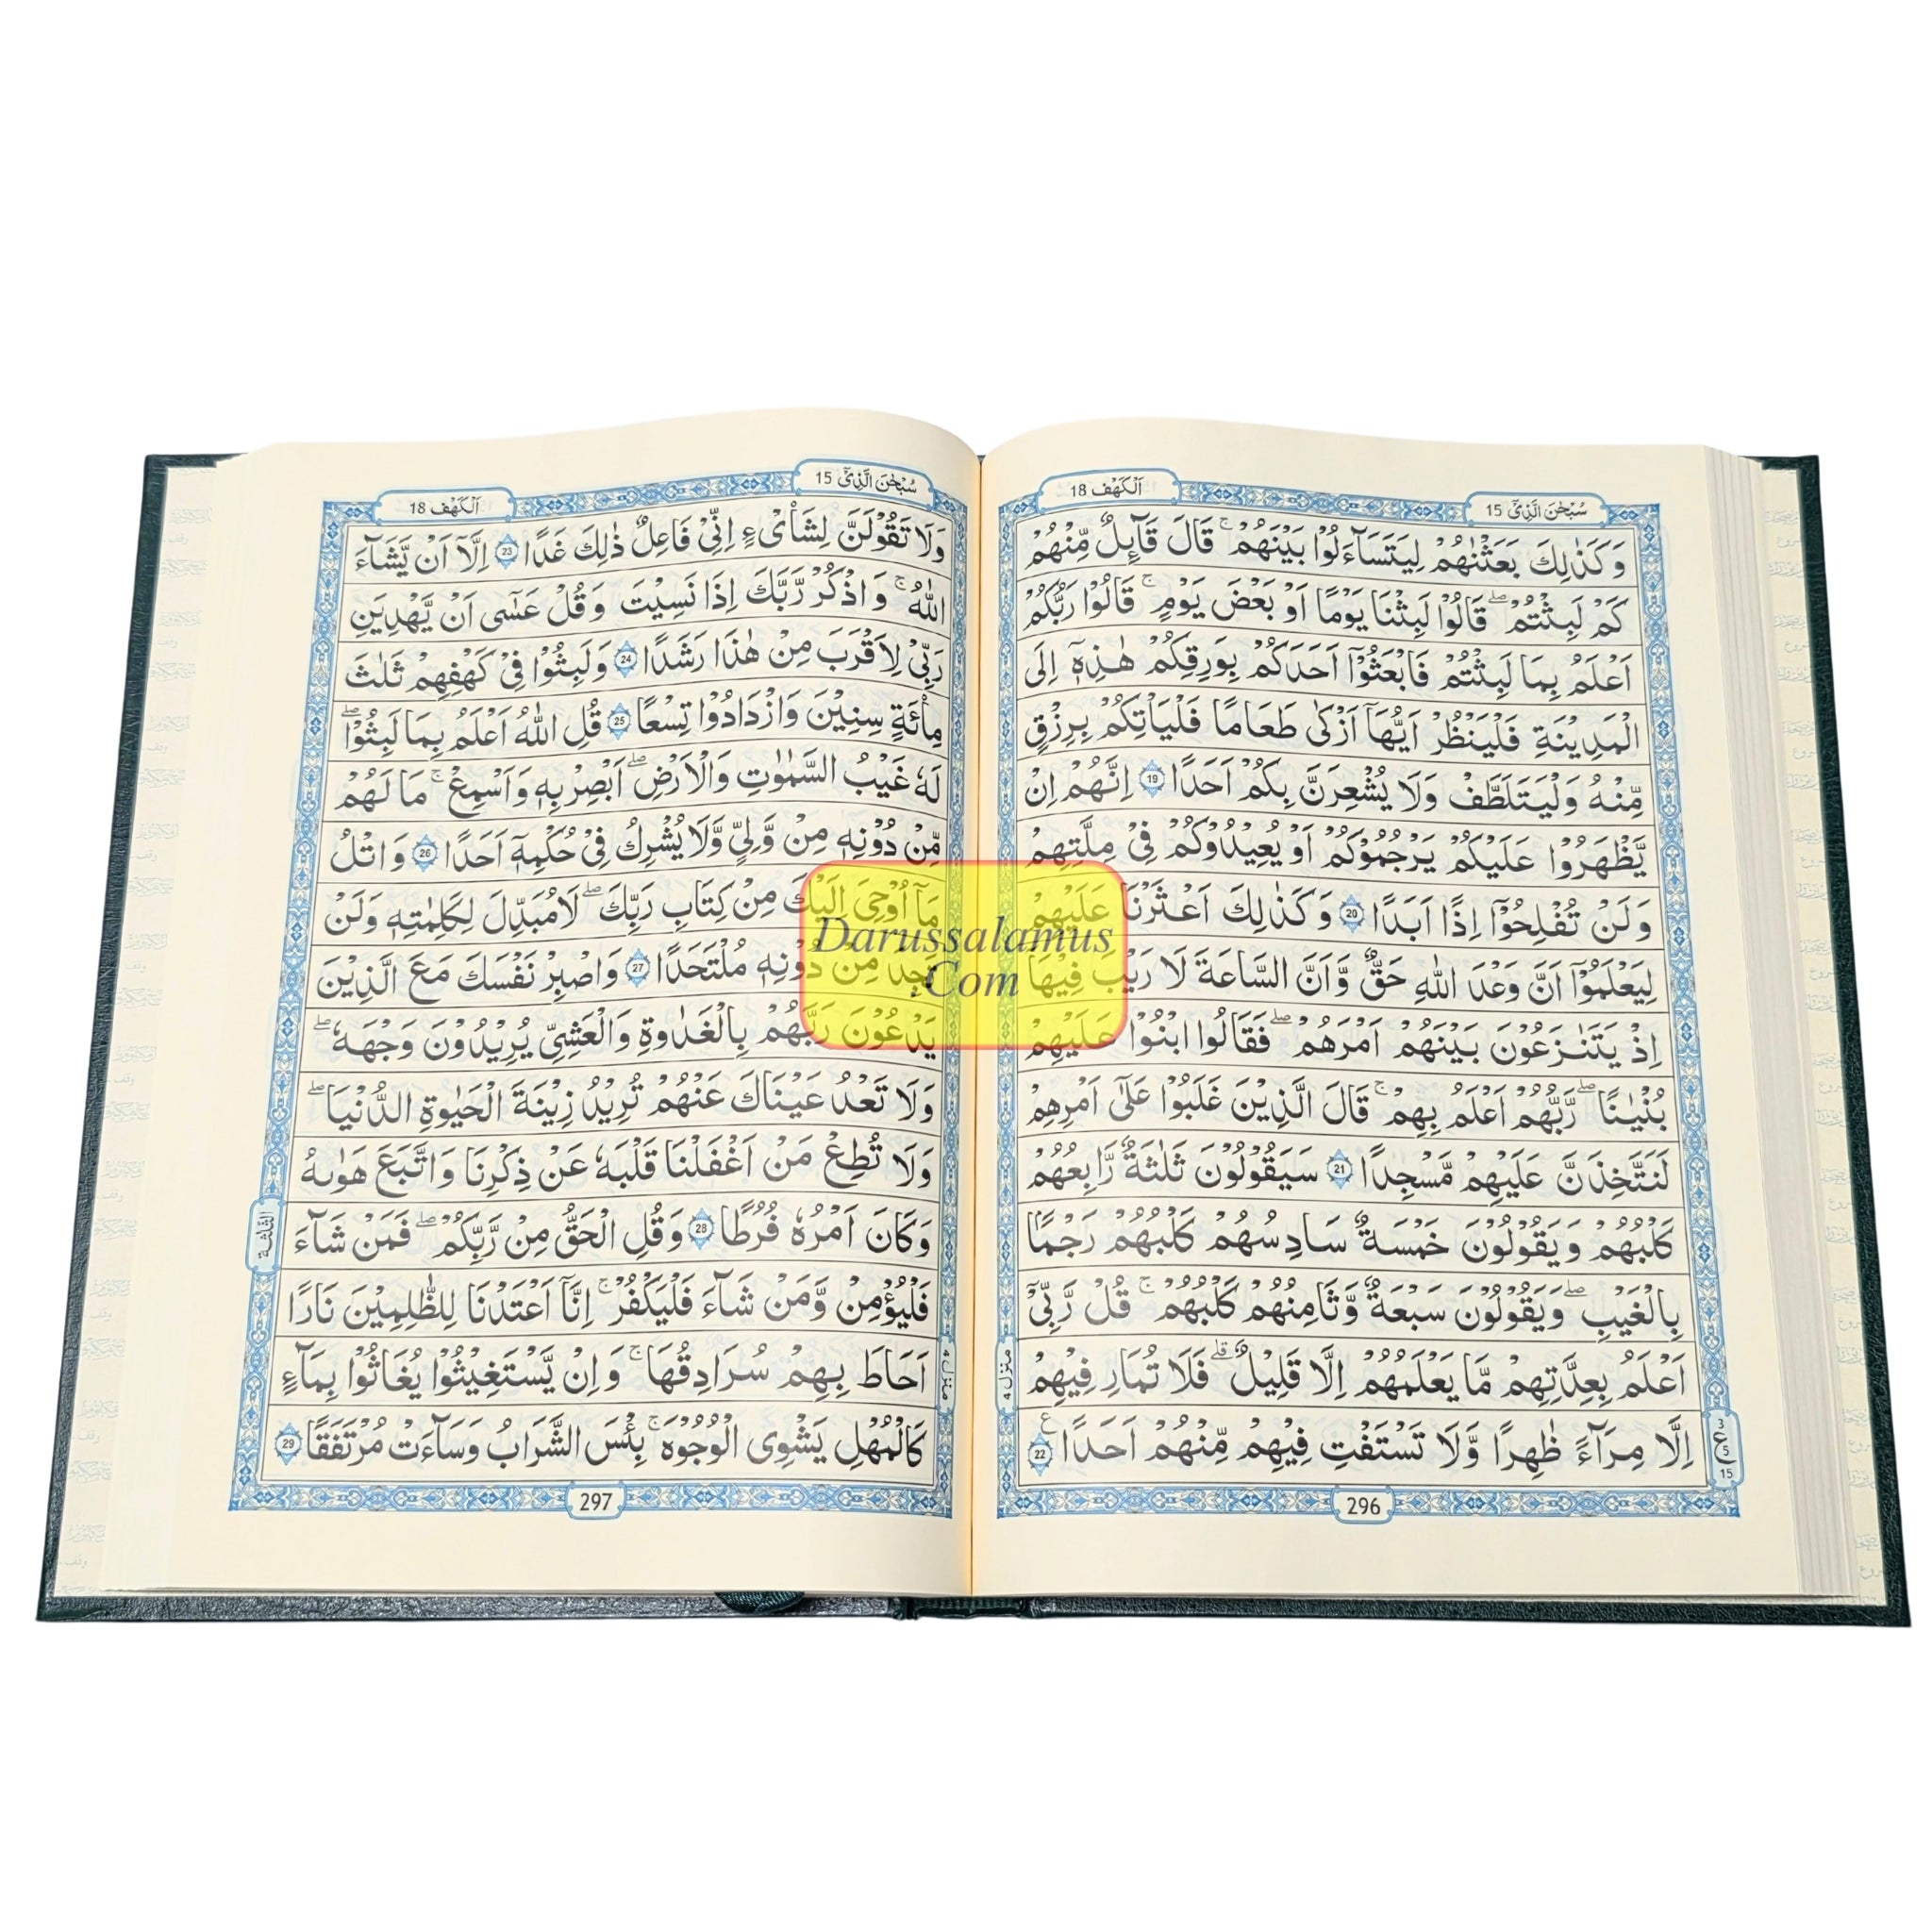 سُبْحٰنَ الَّذِیْٓ 15
اَلْكَهْف 18
وَكَذٰلِكَ بَعَثْنٰهُمْ لِيَتَسَآءَلُوْا بَيْنَهُمْ ۚ قَالَ قَآئِلٌ مِّنْهُمْ
كَمْ لَبِثْتُمْ ؕ قَالُوْا لَبِثْنَا يَوْمًا اَوْ بَعْضَ يَوْمٍ ۚ قَالُوْا رَبُّكُمْ
اَعْلَمُ بِمَا لَبِثْتُمْ فَابْعَثُوْٓا اَحَدَكُمْ بِوَرِقِكُمْ هٰذِهٖٓ اِلَى
الْمَدِيْنَةِ فَلْيَنْظُرْ اَيُّهَآ اَزْكٰى طَعَامًا فَلْيَاْتِكُمْ بِرِزْقٍ
مِّنْهُ وَلْيَتَلَطَّفْ وَلَا يُشْعِرَنَّ بِكُمْ اَحَدًا 19 اِنَّهُمْ اِنْ
يَّظْهَرُوْا عَلَيْكُمْ يَرْجُمُوْكُمْ اَوْ يُعِيْدُوْكُمْ فِيْ مِلَّتِهِمْ
وَلَنْ تُفْلِحُوْٓا اِذًا اَبَدًا 20 وَكَذٰلِكَ اَعْثَرْنَا عَلَيْهِمْ
لِيَعْلَمُوْٓا اَنَّ وَعْدَ اللّٰهِ حَقٌّ وَّاَنَّ السَّاعَةَ لَا رَيْبَ فِيْهَا
اِذْ يَتَنَازَعُوْنَ بَيْنَهُمْ اَمْرَهُمْ ۖ فَقَالُوا ابْنُوْا عَلَيْهِمْ
بُنْيَانًا ۖ رَبُّهُمْ اَعْلَمُ بِهِمْ ۚ قَالَ الَّذِيْنَ غَلَبُوْا عَلٰٓى اَمْرِهِمْ
لَنَتَّخِذَنَّ عَلَيْهِمْ مَّسْجِدًا 21 سَيَقُوْلُوْنَ ثَلٰثَةٌ رَّابِعُهُمْ
كَلْبُهُمْ وَيَقُوْلُوْنَ خَمْسَةٌ سَادِسُهُمْ كَلْبُهُمْ رَجْمًا
بِالْغَيْبِ ۖ وَيَقُوْلُوْنَ سَبْعَةٌ وَّثَامِنُهُمْ كَلْبُهُمْ ۚ قُلْ رَّبِّيْٓ
اَعْلَمُ بِعِدَّتِهِمْ مَّا يَعْلَمُهُمْ اِلَّا قَلِيْلٌ ۗ فَلَا تُمَارِ فِيْهِمْ
اِلَّا مِرَآءً ظَاهِرًا وَّلَا تَسْتَفْتِ فِيْهِمْ مِّنْهُمْ اَحَدًا 22
3
ع 5
15
منزل 4
296
سُبْحٰنَ الَّذِیْٓ 15
اَلْكَهْف 18
وَلَا تَقُوْلَنَّ لِشَاْیْءٍ اِنِّيْ فَاعِلٌ ذٰلِكَ غَدًا 23 اِلَّآ اَنْ يَّشَآءَ
اللّٰهُ ۚ وَاذْكُرْ رَّبَّكَ اِذَا نَسِيْتَ وَقُلْ عَسٰٓى اَنْ يَّهْدِيَنِ
رَبِّيْ لِاَقْرَبَ مِنْ هٰذَا رَشَدًا 24 وَلَبِثُوْا فِيْ كَهْفِهِمْ ثَلٰثَ
مِائَةٍ سِنِيْنَ وَازْدَادُوْا تِسْعًا 25 قُلِ اللّٰهُ اَعْلَمُ بِمَا لَبِثُوْا ۖ
لَهٗ غَيْبُ السَّمٰوٰتِ وَالْاَرْضِ ۖ اَبْصِرْ بِهٖ وَاَسْمِعْ ۚ مَا لَهُمْ
مِّنْ دُوْنِهٖ مِنْ وَّلِيٍّ وَّلَا يُشْرِكُ فِيْ حُكْمِهٖٓ اَحَدًا 26 وَاتْلُ
مَآ اُوْحِيَ اِلَيْكَ مِنْ كِتَابِ رَبِّكَ ۖ لَا مُبَدِّلَ لِكَلِمٰتِهٖ وَلَنْ
تَجِدَ مِنْ دُوْنِهٖ مُلْتَحَدًا 27 وَاصْبِرْ نَفْسَكَ مَعَ الَّذِيْنَ
يَدْعُوْنَ رَبَّهُمْ بِالْغَدٰوةِ وَالْعَشِيِّ يُرِيْدُوْنَ وَجْهَهٗ ۖ
وَلَا تَعْدُ عَيْنَاكَ عَنْهُمْ تُرِيْدُ زِيْنَةَ الْحَيٰوةِ الدُّنْيَا ۖ
وَلَا تُطِعْ مَنْ اَغْفَلْنَا قَلْبَهٗ عَنْ ذِكْرِنَا وَاتَّبَعَ هَوٰىهُ
وَكَانَ اَمْرُهٗ فُرُطًا 28 وَقُلِ الْحَقُّ مِنْ رَّبِّكُمْ ۖ فَمَنْ شَآءَ
فَلْيُؤْمِنْ وَّمَنْ شَآءَ فَلْيَكْفُرْ ۚ اِنَّآ اَعْتَدْنَا لِلظّٰلِمِيْنَ نَارًا
اَحَاطَ بِهِمْ سُرَادِقُهَا ۚ وَاِنْ يَّسْتَغِيْثُوْا يُغَاثُوْا بِمَآءٍ
كَالْمُهْلِ يَشْوِي الْوُجُوْهَ ۚ بِئْسَ الشَّرَابُ وَسَآءَتْ مُرْتَفَقًا 29
الثلثة
منزل 4
297
Darussalamus
.Com